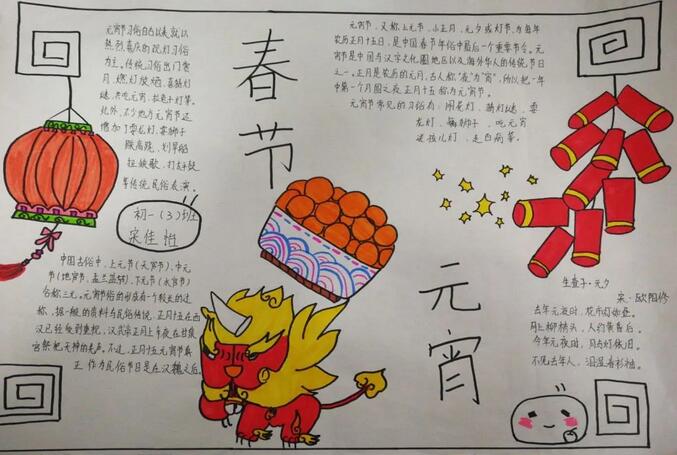 元宵节习俗自古以来就以
热烈喜庆的观灯习俗
为主。传统习俗出门赏
月、燃灯放焰、喜猜灯
谜、共吃元宵、拉兔子灯等。
此外、不少地方元宵节还
增加了耍龙灯、耍狮子
踩高跷、划旱船
扭秧歌、打太平鼓
等传统民俗表演。
春节
元宵节,又称上元节、小正月、元夕或灯节,为每年
农历正月十五日,是中国春节年俗中最后一个重要节令。元
宵节是中国与汉字文化圈地区以及海外华人的传统节日
之一。正月是农历的元月,古人称“夜”为“宵”,所以把一年
中第一个月圆之夜正月十五称为元宵节。
元宵节常见的习俗有:闹花灯、猜灯谜、耍
龙灯、舞狮子、吃元宵
迎孩儿灯、走百病等。
初一(3)班
宋佳怡
中国古俗中,上元节(天官节)、中元
节(地官节,盂兰盆节)、下元节(水官节)
合称三元。元宵节俗的形成有一个较长的过
称,据一般的资料与民俗传统,正月十五在西
汉已经受到重视,汉武帝正月上辛夜在甘泉
宫祭祀
不过,正月十五元宵节真
正作为民俗节日是在汉魏之后。
元宵
生查子·元夕
宋·欧阳修
去年元夜时,花市灯如昼。
月上柳梢头,人约黄昏后。
今年元夜时,月与灯依旧。
不见去年人,泪湿春衫袖。